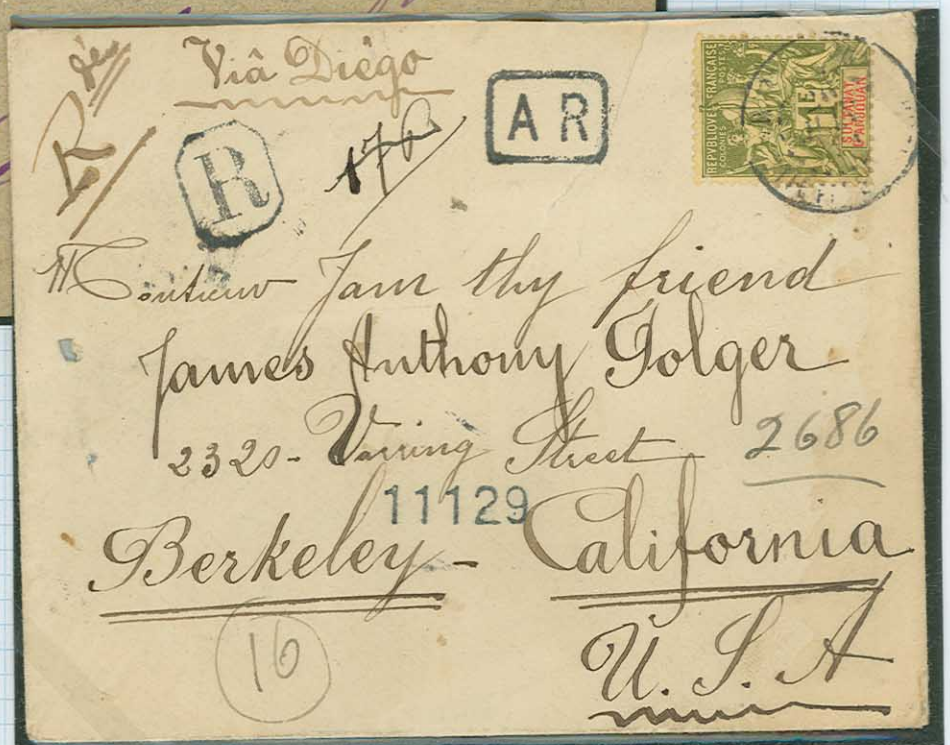 Viâ Diégo
R
R
176
AR
REPVBLIQVE FRANÇAISE
COLONIES
POSTES
1F
SULTANAT D'ANJOUAN
Monsieur Jam thy friend
James Anthony Folger
2320 - Warring Street
2686
11129
Berkeley - California
16
U. S. A